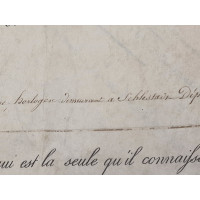 horloger demeurant a Schlestadt Dép
ui est la seule qu'il connaiss